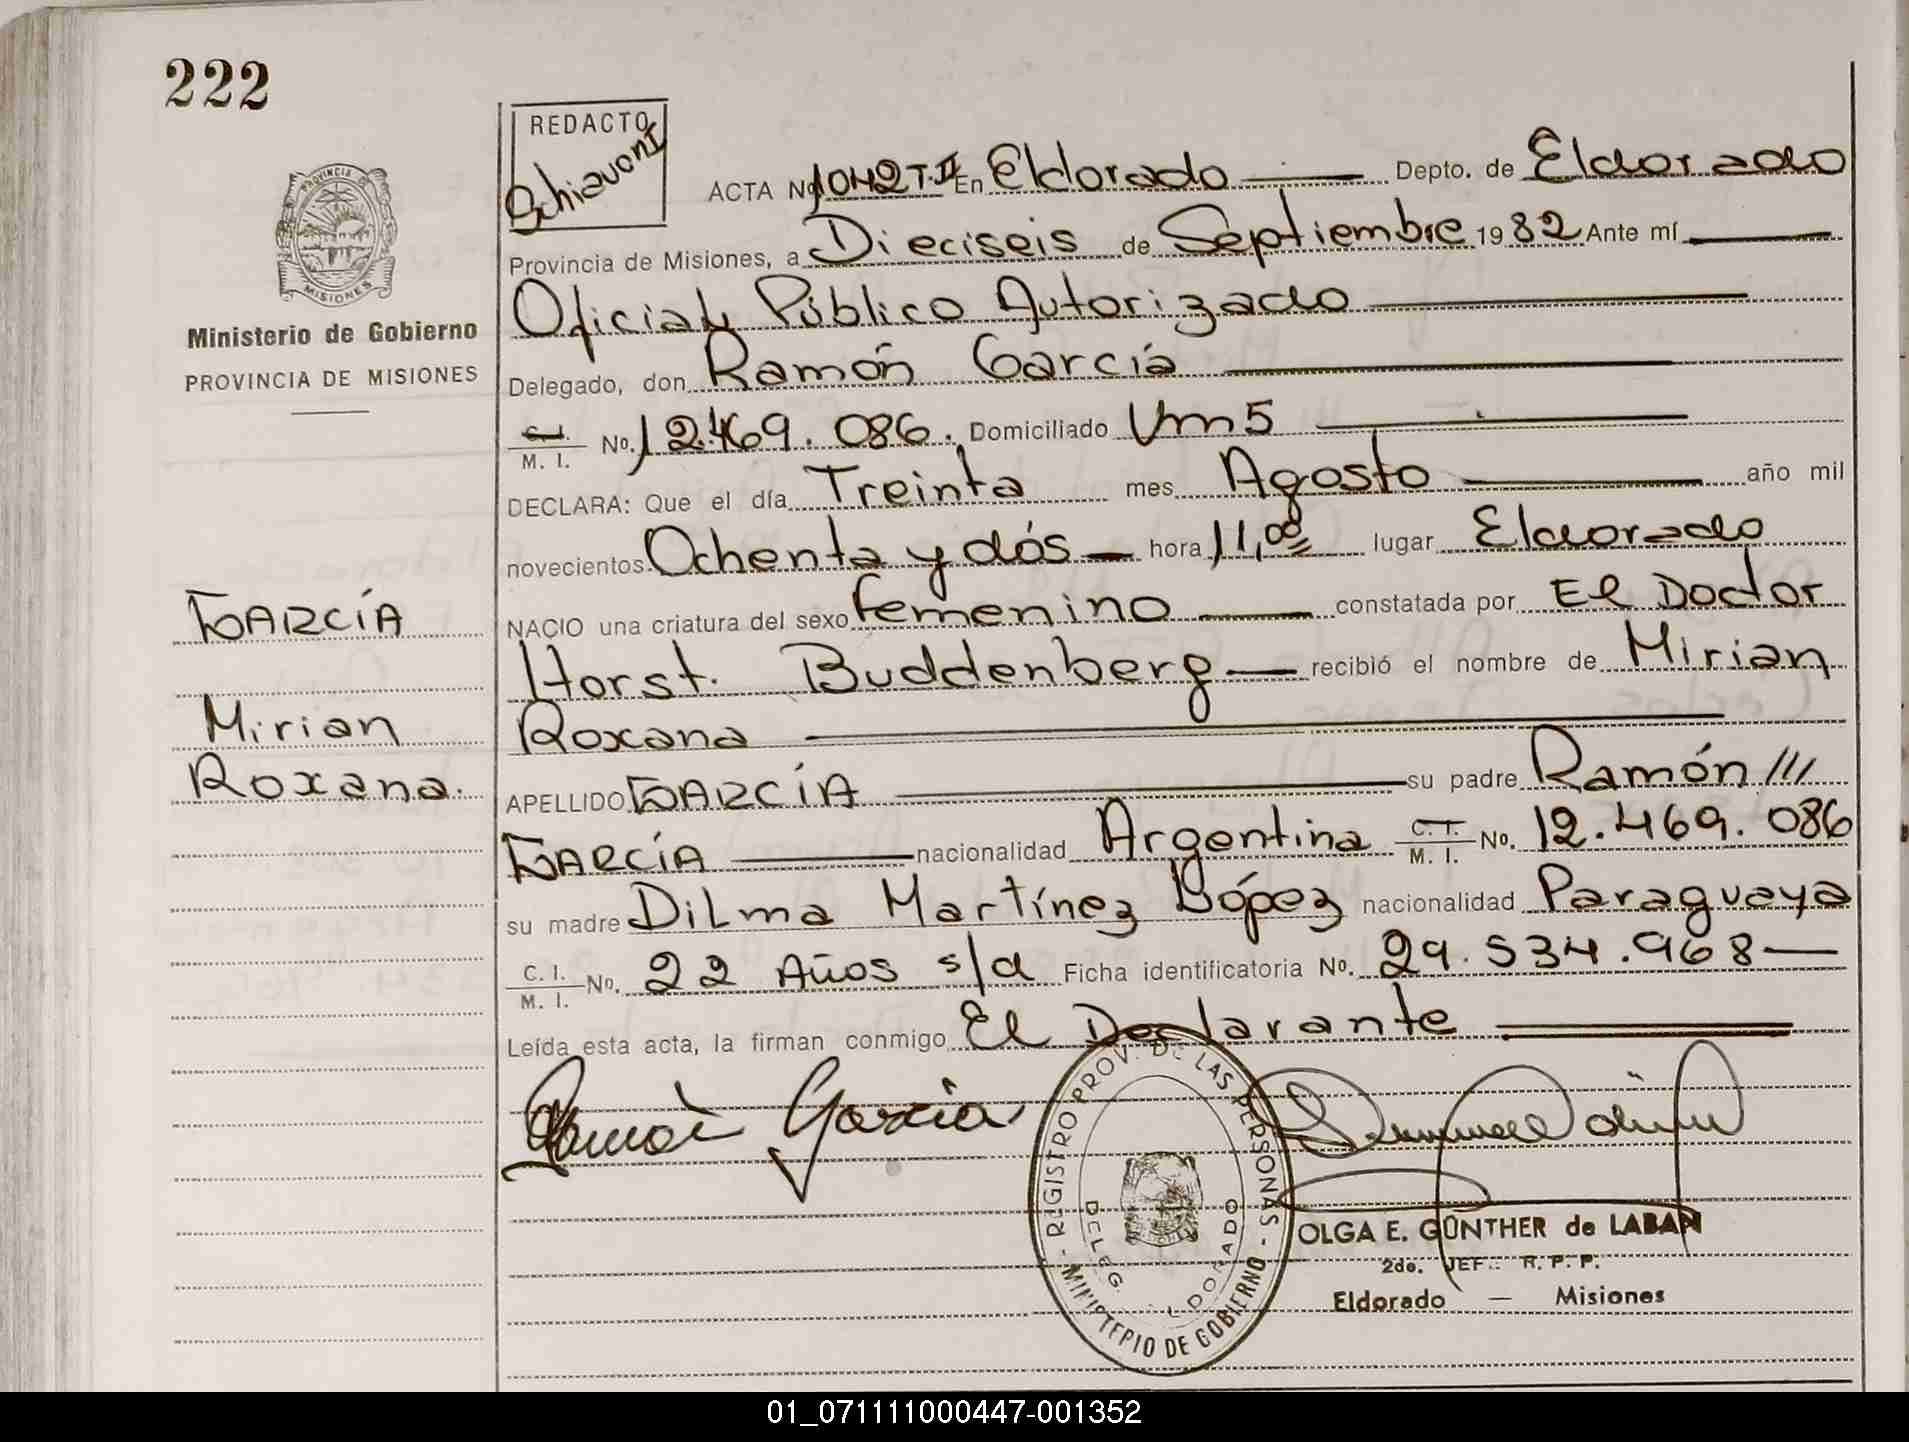 222
REDACTO
Schiavoni
ACTA Nº 1042 T.II En Eldorado Depto. de Eldorado
Provincia de Misiones, a Dieciseis de Septiembre 1982 Ante mí
Oficial Público Autorizado
Delegado, don Ramón García
C.I. M. I. No. 12.469.086. Domiciliado Km 5
DECLARA: Que el día Treinta mes Agosto año mil
novecientos Ochenta y dós hora 11,00 lugar Eldorado
NACIO una criatura del sexo femenino constatada por El Doctor
Horst. Buddenberg recibió el nombre de Mirian
Roxana
APELLIDO GARCÍA su padre Ramón ///
GARCÍA nacionalidad Argentina C. I. M. I. No. 12.469.086
su madre Dilma Martínez López nacionalidad Paraguaya
C. I. M. I. No. 22 Años s/d Ficha identificatoria No. 29.534.968
Leída esta acta, la firman conmigo El Declarante
Ramón García
PROVINCIA DE
MISIONES
Ministerio de Gobierno
PROVINCIA DE MISIONES
GARCÍA
Mirian
Roxana.
REGISTRO PROV. DE LAS PERSONAS
MINISTERIO DE GOBIERNO
DELEG. ELDORADO
OLGA E. GÜNTHER de LABAN
2do. JEFE R. P. P.
Eldorado — Misiones
01_071111000447-001352